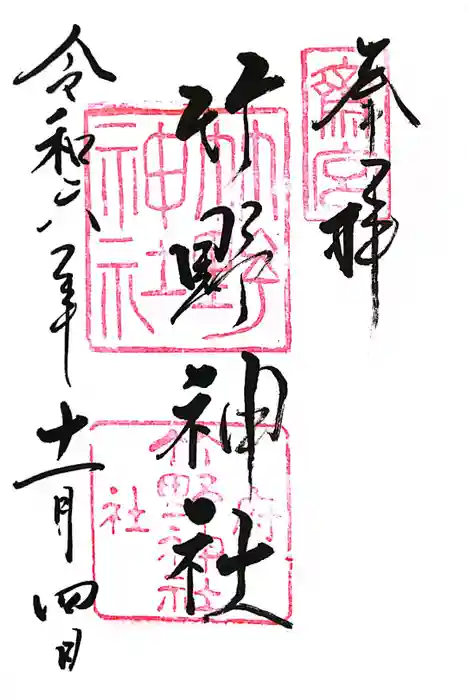 奉拝
齋宮
竹野神社
竹野神社
府社
竹野神社
令和六年十一月四日